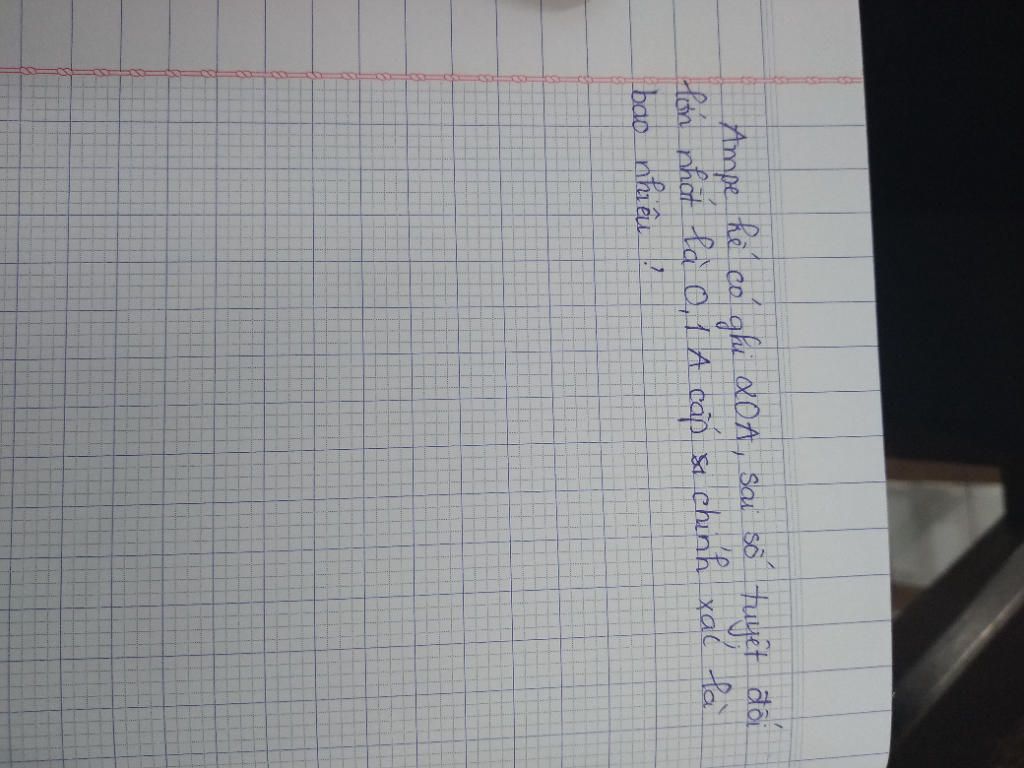 Ampe kế có ghi 20A, sai số tuyệt đối
lớn nhất là 0,1 A cấp chính xác là
bao nhiêu?